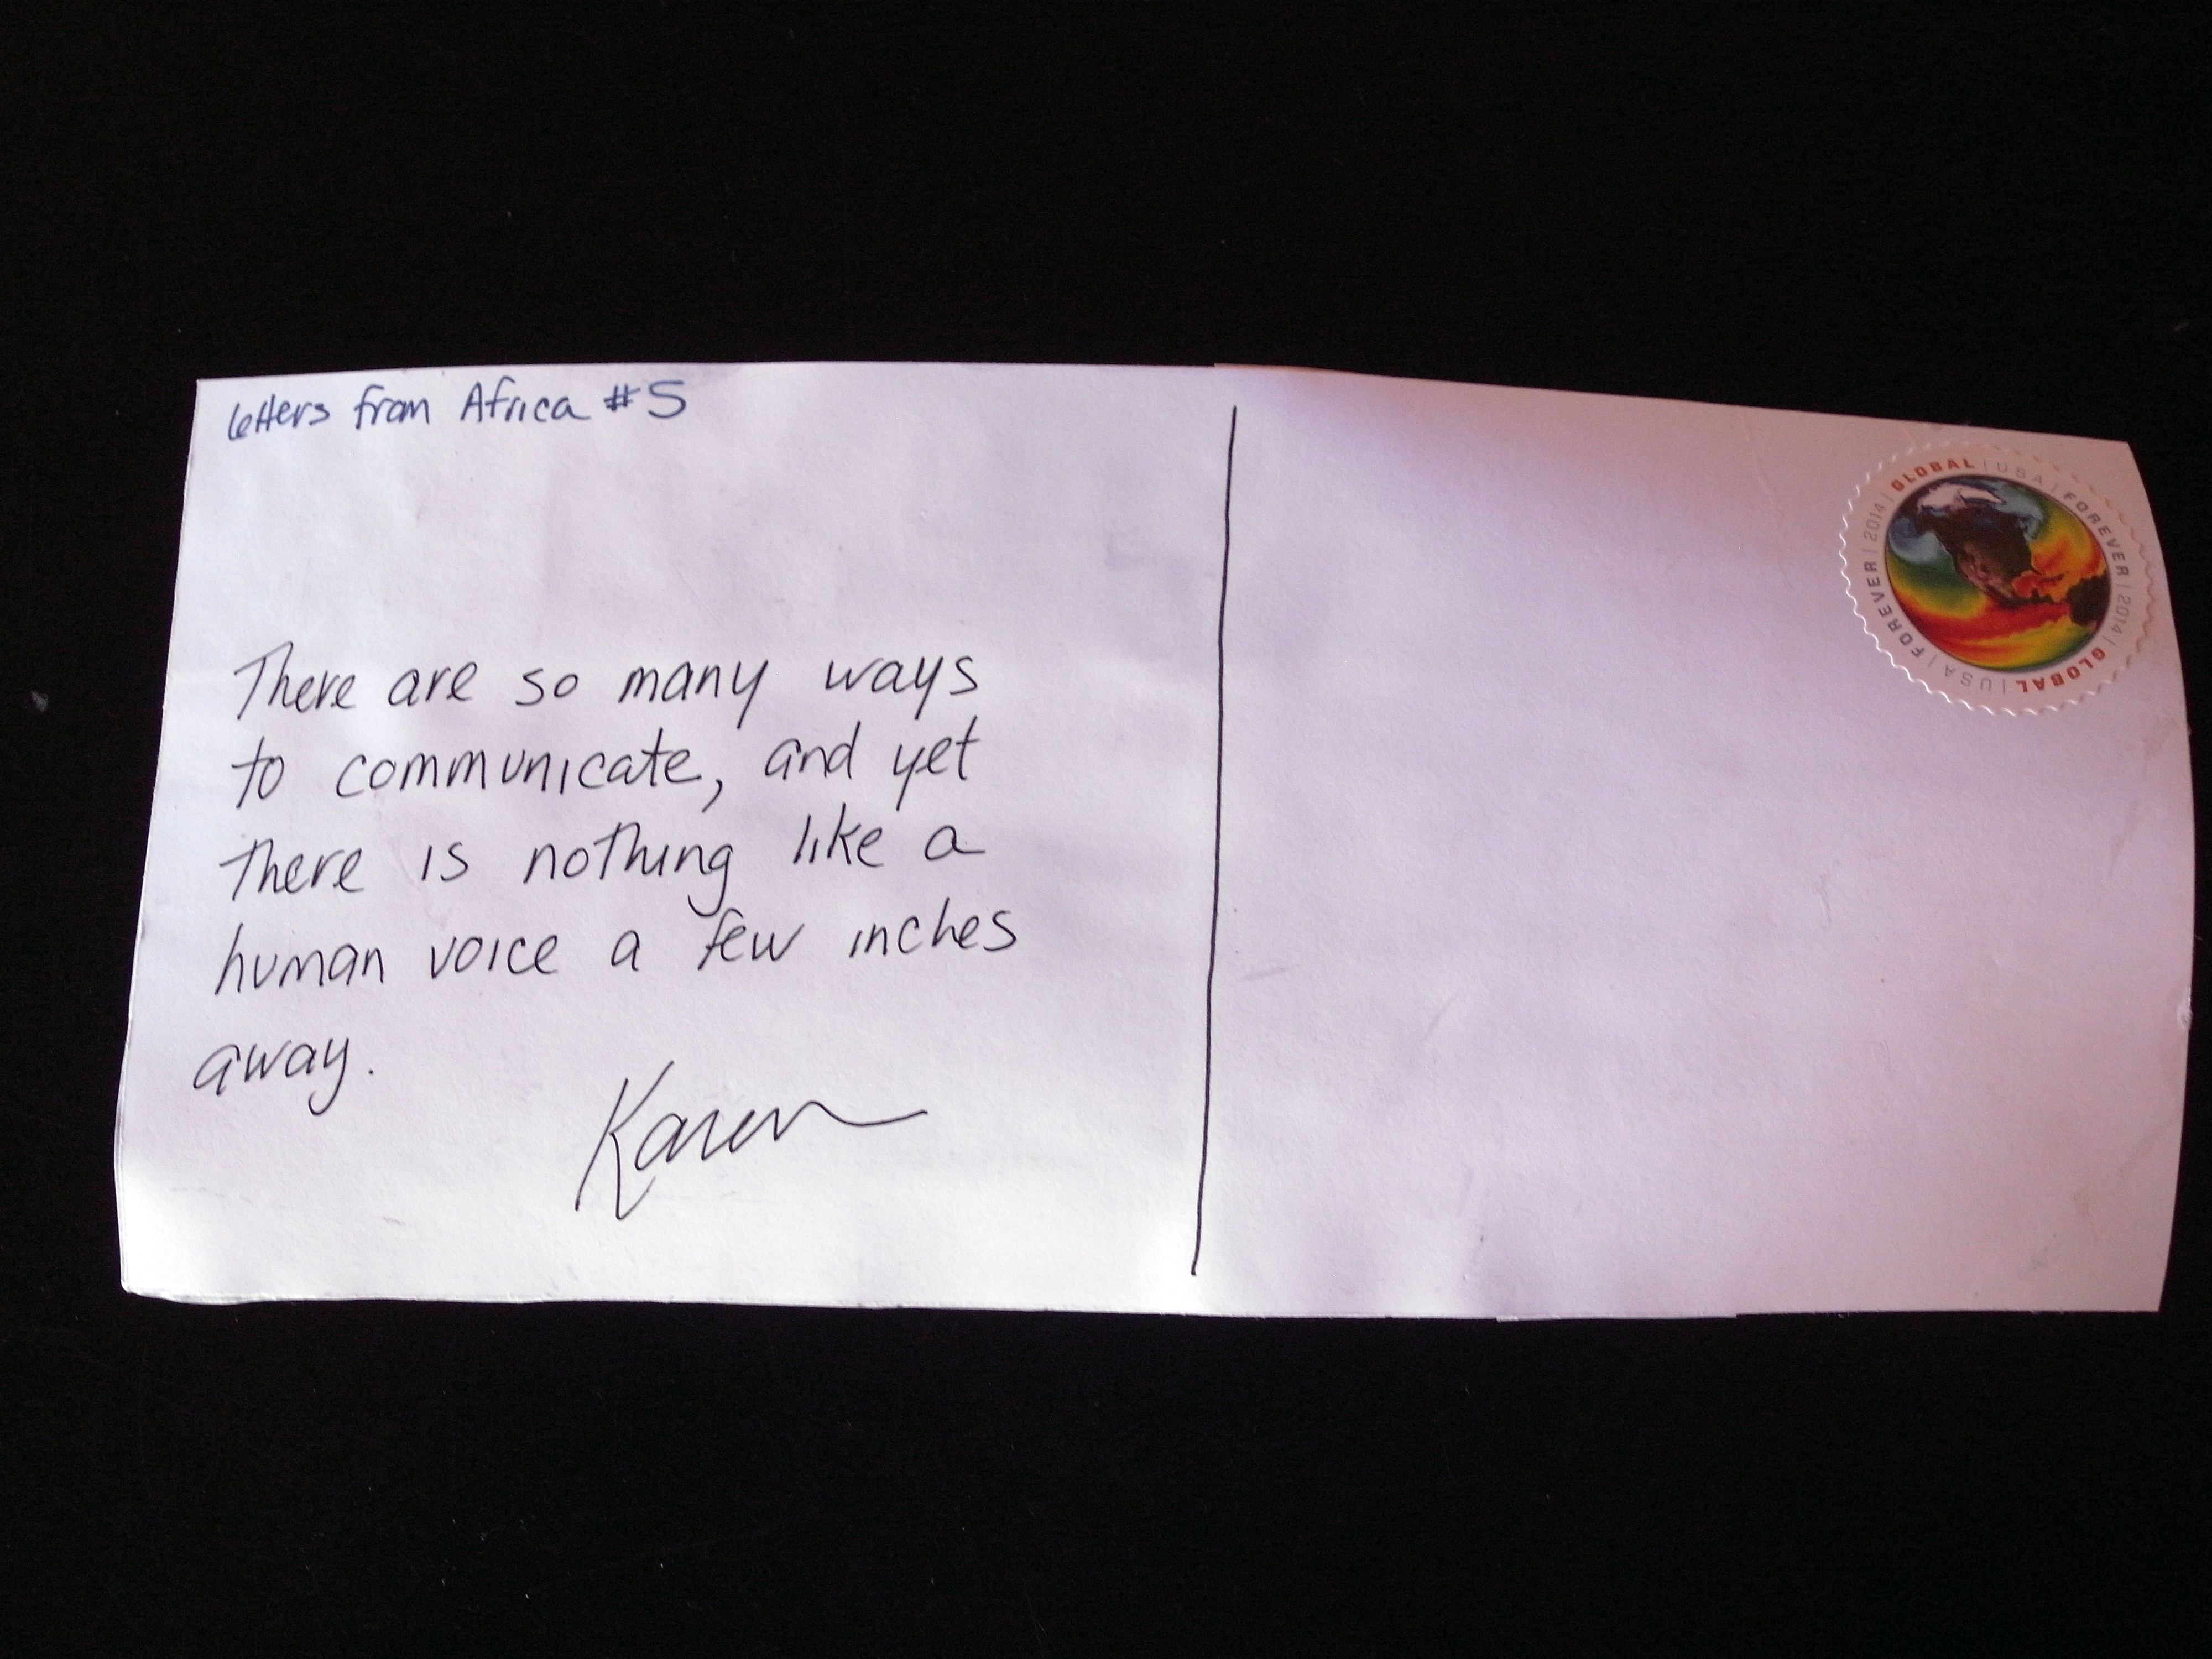 letters from Africa #5
There are so many ways
to communicate, and yet
there is nothing like a
human voice a few inches
away.
Karen
GLOBAL | USA | FOREVER | 2014 | GLOBAL | USA | FOREVER | 2014 |